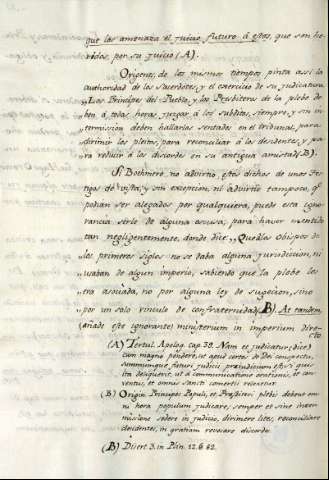 que las amenaza el juicio futuro á estos, que son he-
ridos, por su juicio (A).
Origenes de los mismos tiempos pinta assi la
authoridad de los Sacerdotes, y el exercicio de su judicatura
"Los Principes del Pueblo, y los Presbiteros de la plebe de-
ben á todas horas juzgar á los subditos, siempre, y sin in-
termission deben hallarse sentados en el tribunal, para
dirimir los pleitos, para reconciliar á los desidentes, y pa-
ra reducir á los discordes en su antigua amistad (B).
Si Bothmero no advirtio, estos dichos de unos Tes-
tigos de vista, y sin excepcion, ni advirtio tampoco, qe
podian ser alegados por qualquiera, puede esta igno-
rancia serle de alguna escusa, para haver mentido
tan negligentemente, donde dice "Que á los Obispos de
los primeros siglos no se daba alguna jurisdiccion, ni
usaban de algun imperio, sabiendo que la plebe les
era asociada, no por alguna ley de sugecion, sino
por un solo vinculo de confraternidad (B). At tandem
(añade este ignorante) ministerium in imperium
(A) Tertul. Apolog. cap. 39. Nam et judicatur (dice)
cum magno pondere, ut apud certos de Dei conspectu,
summumque futuri judicii praejudicium est, si quis
ita deliquerit, ut á communicatione orationis, et con-
ventus, et omnis sancti comertii relegetur.
(B) Origin. Principes Populi, et Presbiteri plebis debent om-
ni hora populum judicare, semper et sine inter-
missione sedere in judicio, dirimere lites, reconciliare
desidentes, in gratiam revocare discordes.
(B) Disert. 3. in Plin. 12. 6. 82.